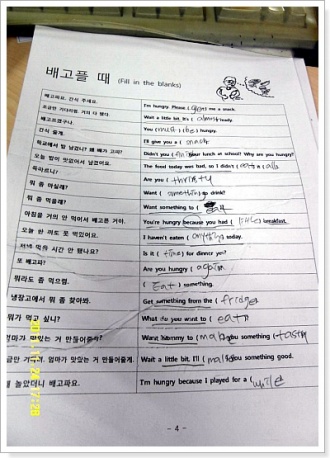 배고플 때 (Fill in the blanks)
배고파요. 간식 주세요. I'm hungry. Please ( give me a snack.
조금만 기다리렴. 거의 다 됐다. Wait a little bit. It's ( almost ready.
배고프겠구나 You (must) (be) hungry.
간식 줄게. I'll give you a ( snack
학교에서 밥 남겼니? 왜 배가 고파? Didn't you ( your lunch at school? Why are you hungry?
오늘 밥이 맛없어서 남겼어요. The food today was bad, so I didn't ( eat
목마르니? Are you ( thirsty
뭐 좀 마실래? Want ( something to drink?
뭐 좀 먹을래? Want something to ( eat
아침을 거의 안 먹어서 배고픈 거야. You're hungry because you had ( little) breakfast.
오늘 한 끼도 못 먹었어요. I haven't eaten ( anything today.
저녁 먹을 시간 안 됐나요? Is it ( time) for dinner yet?
또 배고파? Are you hungry ( again
뭐라도 좀 먹으렴. ( Eat ) something.
냉장고에서 뭐 좀 찾아봐. Get something from the ( fridge
뭐가 먹고 싶니? What do you want to ( eat
엄마가 맛있는 거 만들어줄까? Want Mommy to ( make you something ( tasty
조금만 기다려. 엄마가 맛있는 거 만들어줄게. Wait a little bit. I'll ( make you something good.
놀았더니 배고파요. I'm hungry because I played for a ( while
- 4 -